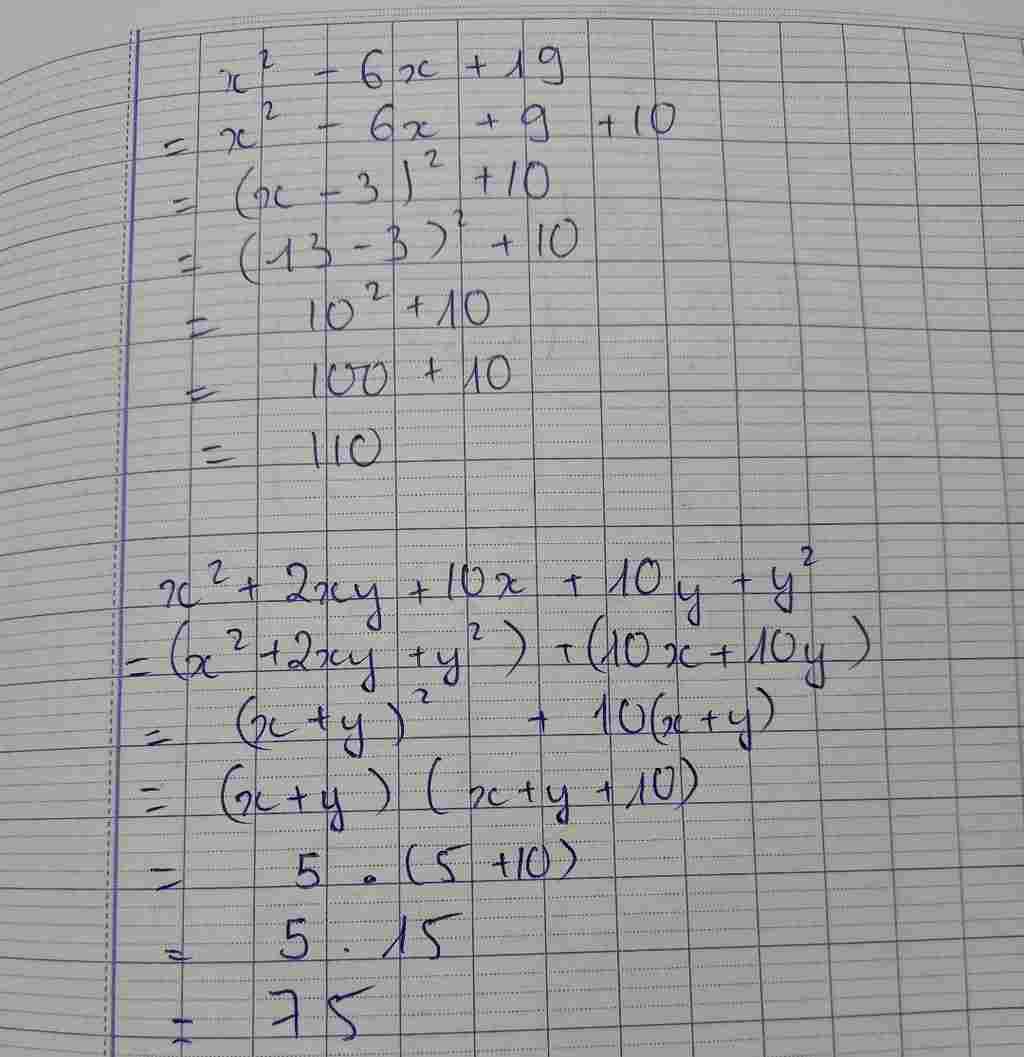 x² - 6x + 19
= x² - 6x + 9 + 10
= (x - 3)² + 10
= (13 - 3)² + 10
= 10² + 10
= 100 + 10
= 110
x² + 2xy + 10x + 10y + y²
= (x² + 2xy + y²) + (10x + 10y)
= (x + y)² + 10(x + y)
= (x + y) (x + y + 10)
= 5 . (5 + 10)
= 5 . 15
= 75